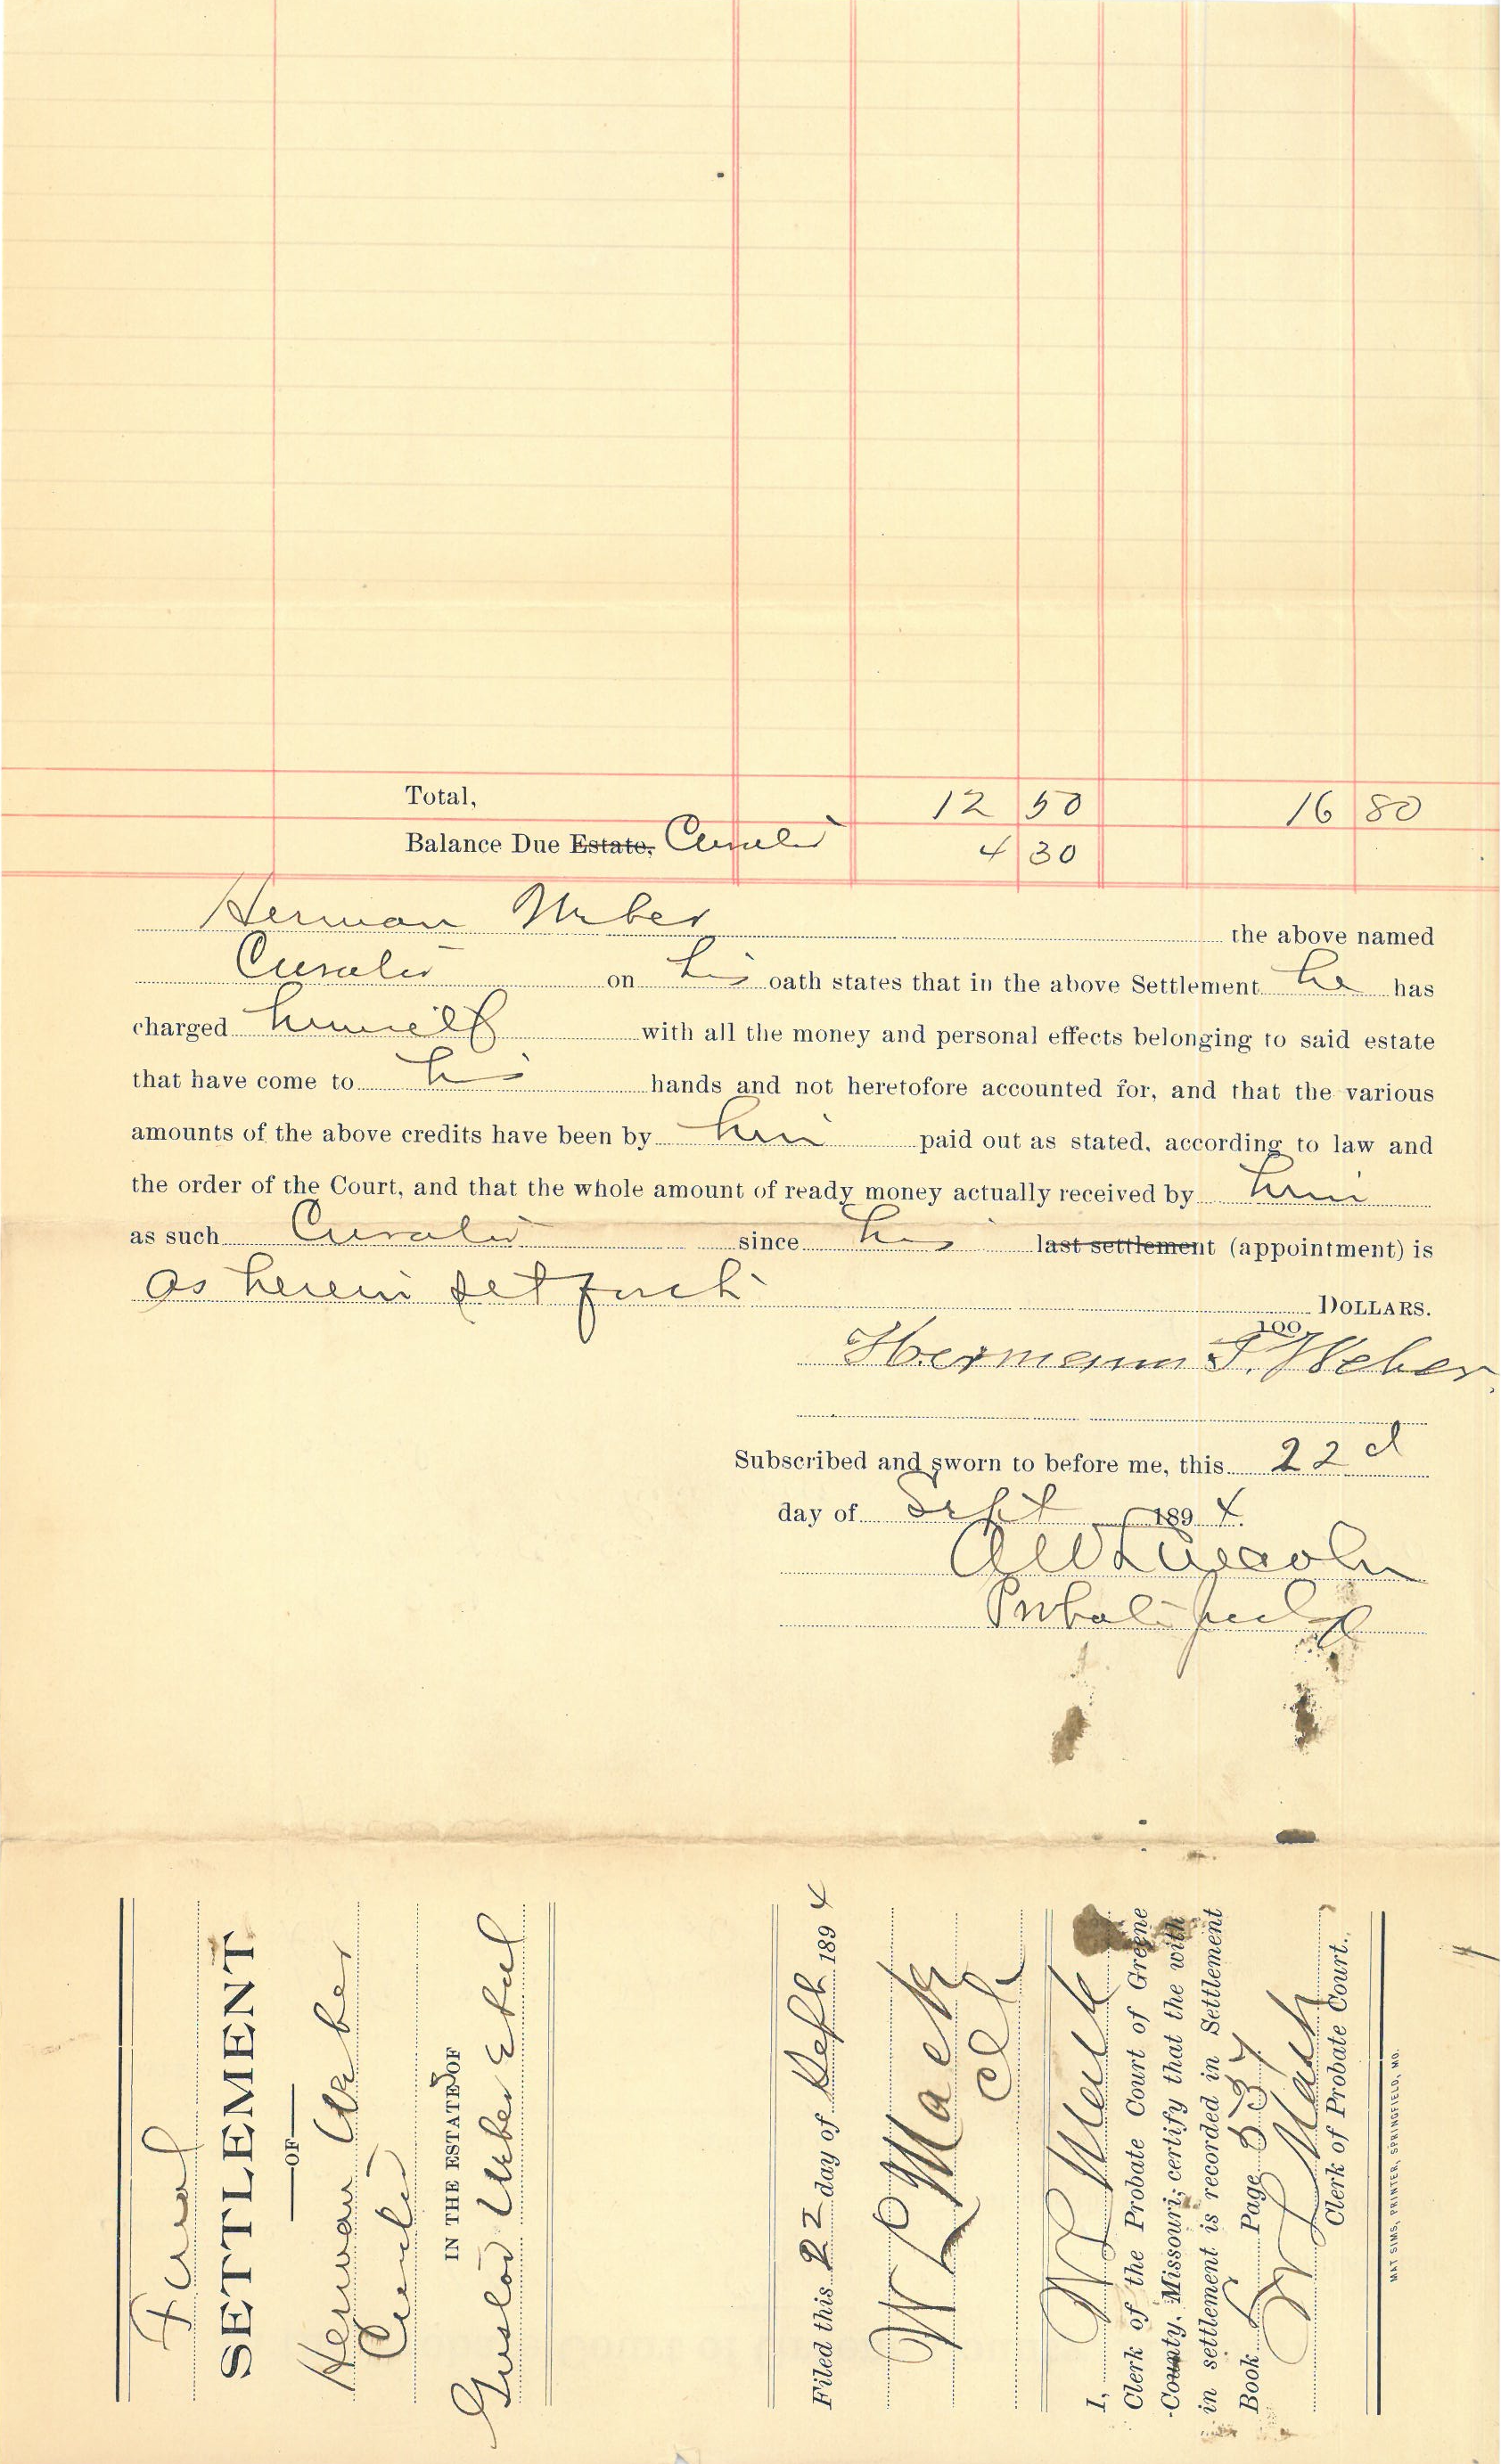 Total, 12 50 16 80
Balance Due Estate, Curator 4 30
Herman Weber the above named
Curator on his oath states that in the above Settlement he has
charged himself with all the money and personal effects belonging to said estate
that have come to his hands and not heretofore accounted for, and that the various
amounts of the above credits have been by him paid out as stated, according to law and
the order of the Court, and that the whole amount of ready money actually received by him
as such Curator since his last settlement (appointment) is
as herein set forth DOLLARS.
100
Hermann F. Weber.
Subscribed and sworn to before me, this 22d
day of Sept 1894.
A W Lincoln
Probate Judge
Final
SETTLEMENT
—OF—
Herman Weber
Curator
IN THE ESTATE OF
Gustav Weber Et al
Filed this 22 day of Sept 1894
W L Mack
Clk
I, W L Mack
Clerk of the Probate Court of Greene
County, Missouri, certify that the with
in settlement is recorded in Settlement
Book Page 537
W L Mack
Clerk of Probate Court.
MAT SIMS, PRINTER, SPRINGFIELD, MO.